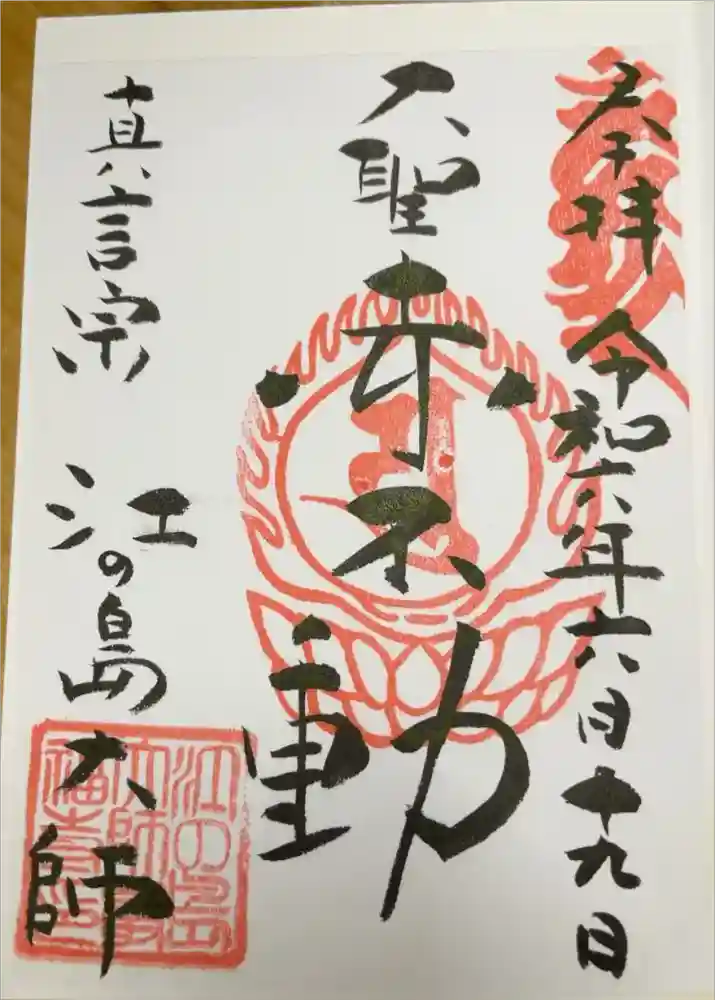 奉拝 令和六年六月十九日
大聖赤不動
真言宗 江の島大師
江の島
大師
福寺印